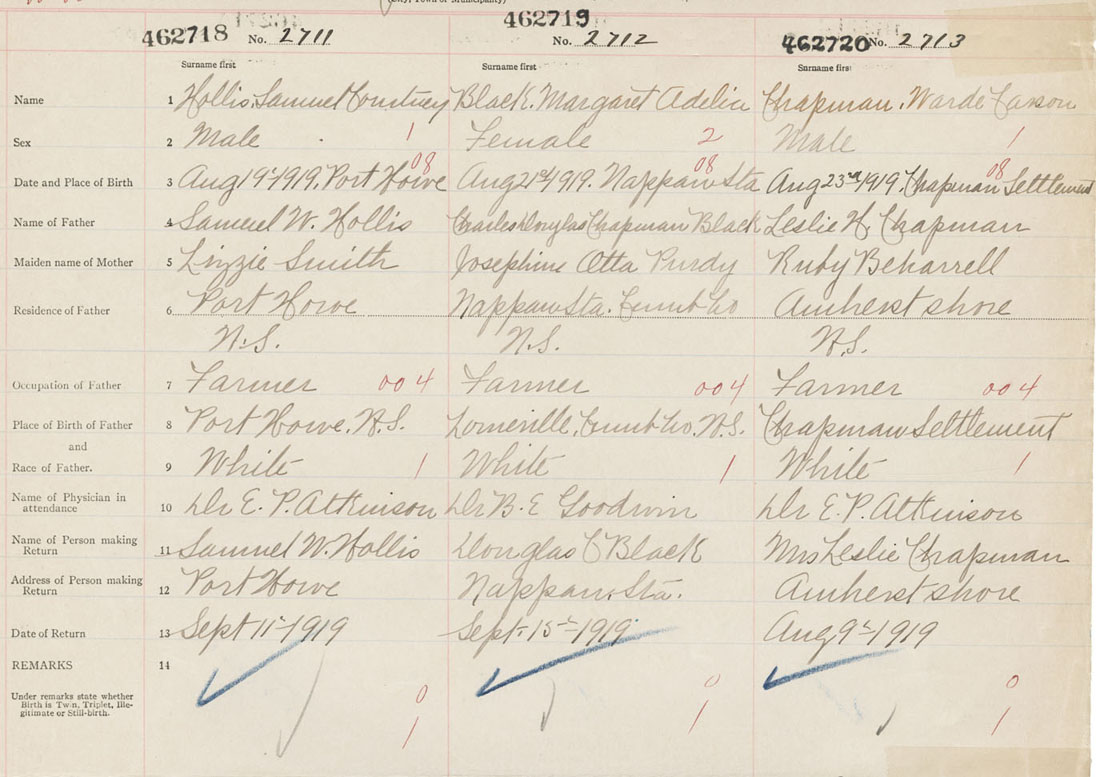 (City, Town or Municipality)
462718 No. 2711 462719 No. 2712 462720 No. 2713
Surname first Surname first Surname first
Name 1 Hollis, Samuel Courtney Black, Margaret Adelia Chapman, Warde Casson
Sex 2 Male 1 Female 2 Male 1
08 08 08
Date and Place of Birth 3 Aug 19th 1919, Port Howe Aug 21st 1919. Nappan Sta Aug 23rd 1919, Chapman Settlement
Name of Father 4 Samuel W. Hollis Charles Douglas Chapman Black Leslie H. Chapman
Maiden name of Mother 5 Lizzie Smith Josephine Otta Purdy Ruby Beharrell
Residence of Father 6 Port Howe Nappan Sta. Cumb Co Amherst shore
N.S. N.S. N.S.
Occupation of Father 7 Farmer 004 Farmer 004 Farmer 004
Place of Birth of Father 8 Port Howe, N.S. Lorneville, Cumb Co, N.S. Chapman Settlement
and
Race of Father. 9 White 1 White 1 White 1
Name of Physician in
attendance 10 Dr E. P. Atkinson Dr B. E Goodwin Dr E. P. Atkinson
Name of Person making
Return 11 Samuel W. Hollis Douglas C Black Mrs Leslie Chapman
Address of Person making
Return 12 Port Howe Nappan, Sta. Amherst shore
Date of Return 13 Sept 11th 1919 Sept. 15th 1919 Aug 9th 1919
REMARKS 14
Under remarks state whether
Birth is Twin, Triplet, Ille-
gitimate or Still-birth.
0 0 0
1 1 1